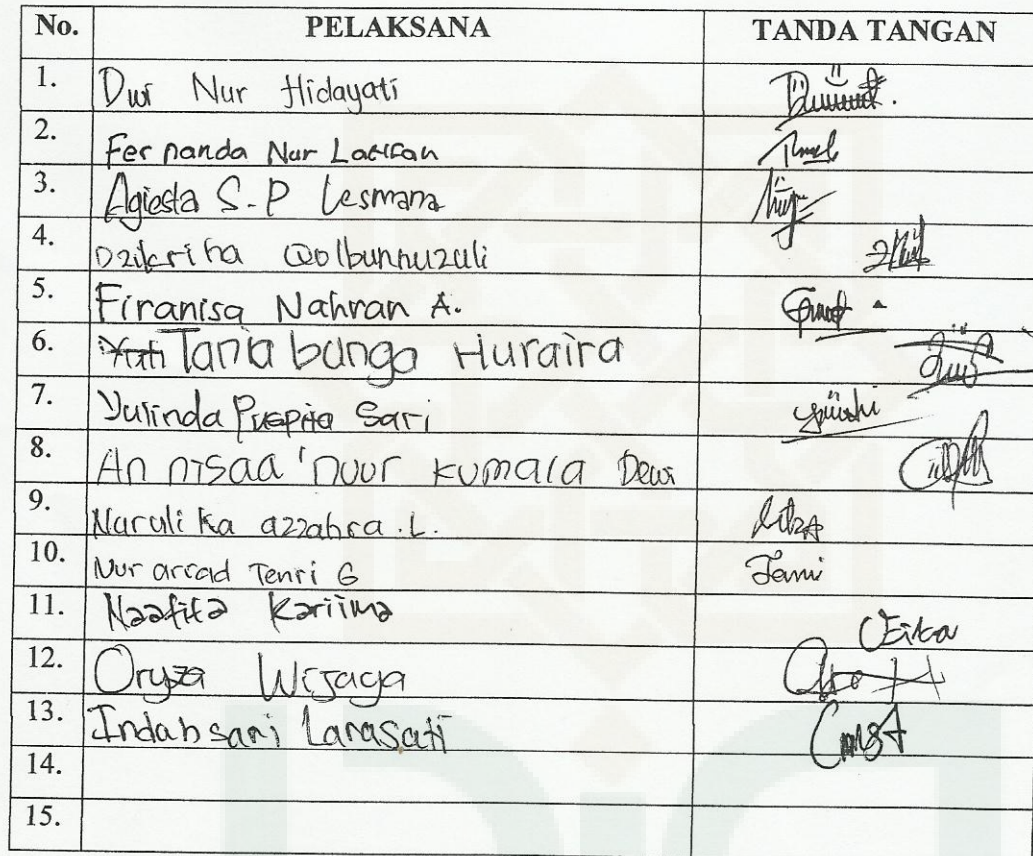 No. PELAKSANA TANDA TANGAN
1. Dwi Nur Hidayati
2. Fernanda Nur
3. Agiesta S.P Lesmana
4. Dzikriha Qolbunnuzuli
5. Firanisa Nahran A.
6. Tania bunga Huraira
7. Yulinda Puspita Sari
8. An nisaa 'nuur kumala Dewi
9. Narulika azzahra.L.
10. Nur arsad Tenri G Tenri
11. Naafita Kariima
12. Oryza Wijaya
13. Indahsari Larasati
14.
15.